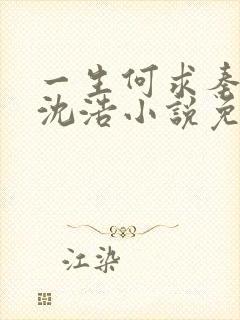 一生何求秦
沈浩小說免
江染